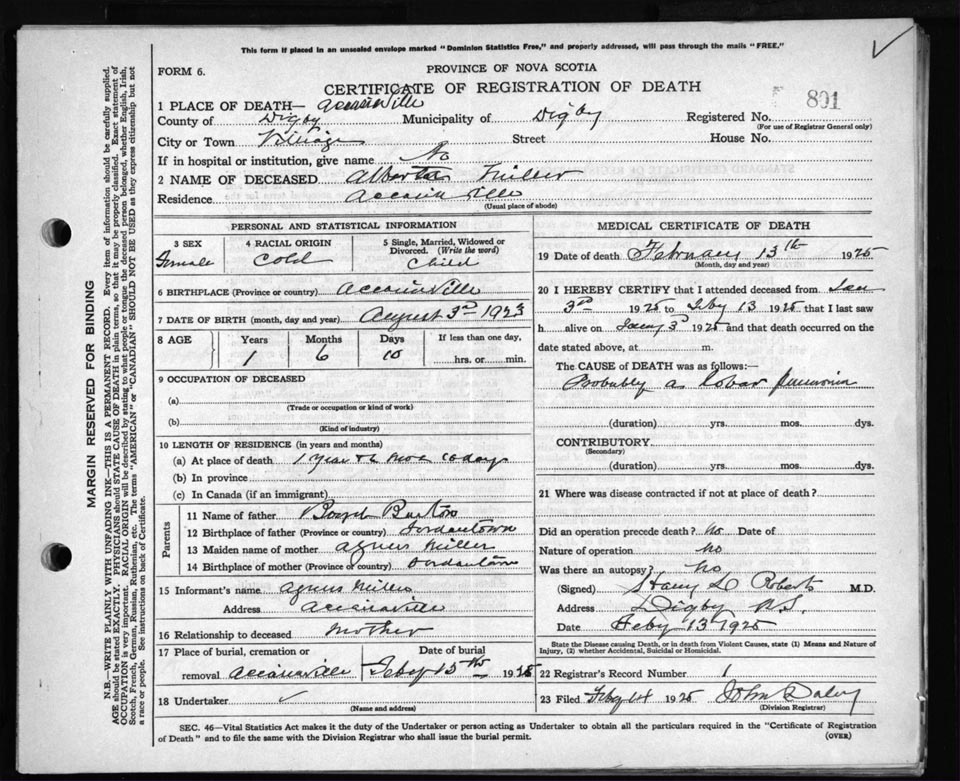 This form if placed in an unsealed envelope marked "Dominion Statistics Free," and properly addressed, will pass through the mails "FREE."
FORM 6.
PROVINCE OF NOVA SCOTIA
CERTIFICATE OF REGISTRATION OF DEATH
801
1 PLACE OF DEATH— Acaciaville
County of Digby Municipality of Digby Registered No.
(For use of Registrar General only)
City or Town Village Street House No.
If in hospital or institution, give name No
2 NAME OF DECEASED Alberta Miller
Residence Acaciaville
(Usual place of abode)
PERSONAL AND STATISTICAL INFORMATION
3 SEX Female
4 RACIAL ORIGIN Cold
5 Single, Married, Widowed or Divorced. (Write the word) Child
6 BIRTHPLACE (Province or country) Acaciaville
7 DATE OF BIRTH (month, day and year) August 3rd 1923
8 AGE Years Months Days If less than one day,
1 6 10 hrs. or min.
9 OCCUPATION OF DECEASED
(a)
(Trade or occupation or kind of work)
(b)
(Kind of industry)
10 LENGTH OF RESIDENCE (in years and months)
(a) At place of death 1 year 6 mos 10 days
(b) In province
(c) In Canada (if an immigrant)
Parents
11 Name of father Burton
12 Birthplace of father (Province or country) Jordantown
13 Maiden name of mother Agnes Miller
14 Birthplace of mother (Province or Country) Jordantown
15 Informant's name Agnes Miller
Address Acaciaville
16 Relationship to deceased Mother
17 Place of burial, cremation or removal Acaciaville
Date of burial Feby 15th 1925
18 Undertaker ✓
(Name and address)
MEDICAL CERTIFICATE OF DEATH
19 Date of death February 13th 1925
(Month, day and year)
20 I HEREBY CERTIFY that I attended deceased from Jan
3rd 1925 to Feby 13 1925 that I last saw
h alive on Jany 3rd 1925 and that death occurred on the
date stated above, at m.
The CAUSE of DEATH was as follows:—
Probably a Lobar Pneumonia
(duration) yrs. mos. dys.
CONTRIBUTORY
(Secondary)
(duration) yrs. mos. dys.
21 Where was disease contracted if not at place of death?
Did an operation precede death? No Date of
Nature of operation No
Was there an autopsy? No
(Signed) Harry L Roberts M.D.
Address Digby N.S.
Date Feby 13 1925
State the Disease causing Death, or in death from Violent Causes, state (1) Means and Nature of
Injury, (2) whether Accidental, Suicidal or Homicidal.
22 Registrar's Record Number 1
23 Filed Feby 14 1925 John Daley
(Division Registrar)
SEC. 46—Vital Statistics Act makes it the duty of the Undertaker or person acting as Undertaker to obtain all the particulars required in the "Certificate of Registration
of Death" and to file the same with the Division Registrar who shall issue the burial permit.
(OVER)
MARGIN RESERVED FOR BINDING
N.B.—WRITE PLAINLY WITH UNFADING INK—THIS IS A PERMANENT RECORD. Every item of information should be carefully supplied.
AGE should be stated EXACTLY. PHYSICIANS should STATE CAUSE OF DEATH in plain terms, so that it may be properly classified. Exact statement of
OCCUPATION is very important. RACIAL ORIGIN will be described by stating to what people or tongue the deceased person belonged, whether English, Irish,
Scotch, French, German, Russian, Ruthenian, etc. The terms "AMERICAN" or "CANADIAN" SHOULD NOT BE USED as they express citizenship but not
a race or people. See instructions on back of Certificate.